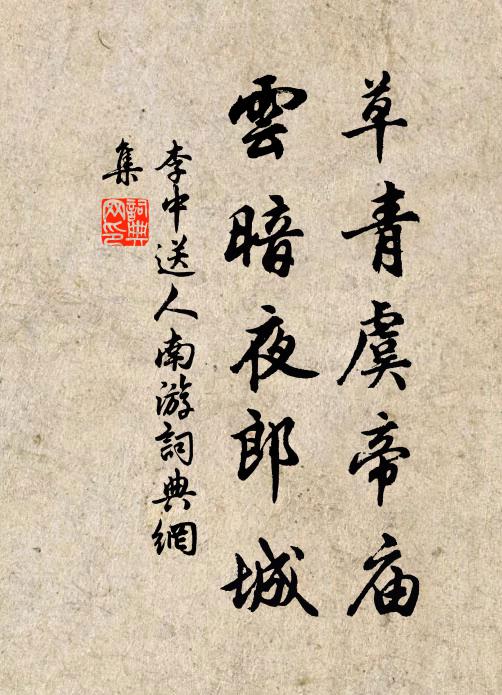 草青虞帝庙
雲暗夜郎城
李中送人南游詞典網
集
詞典网印